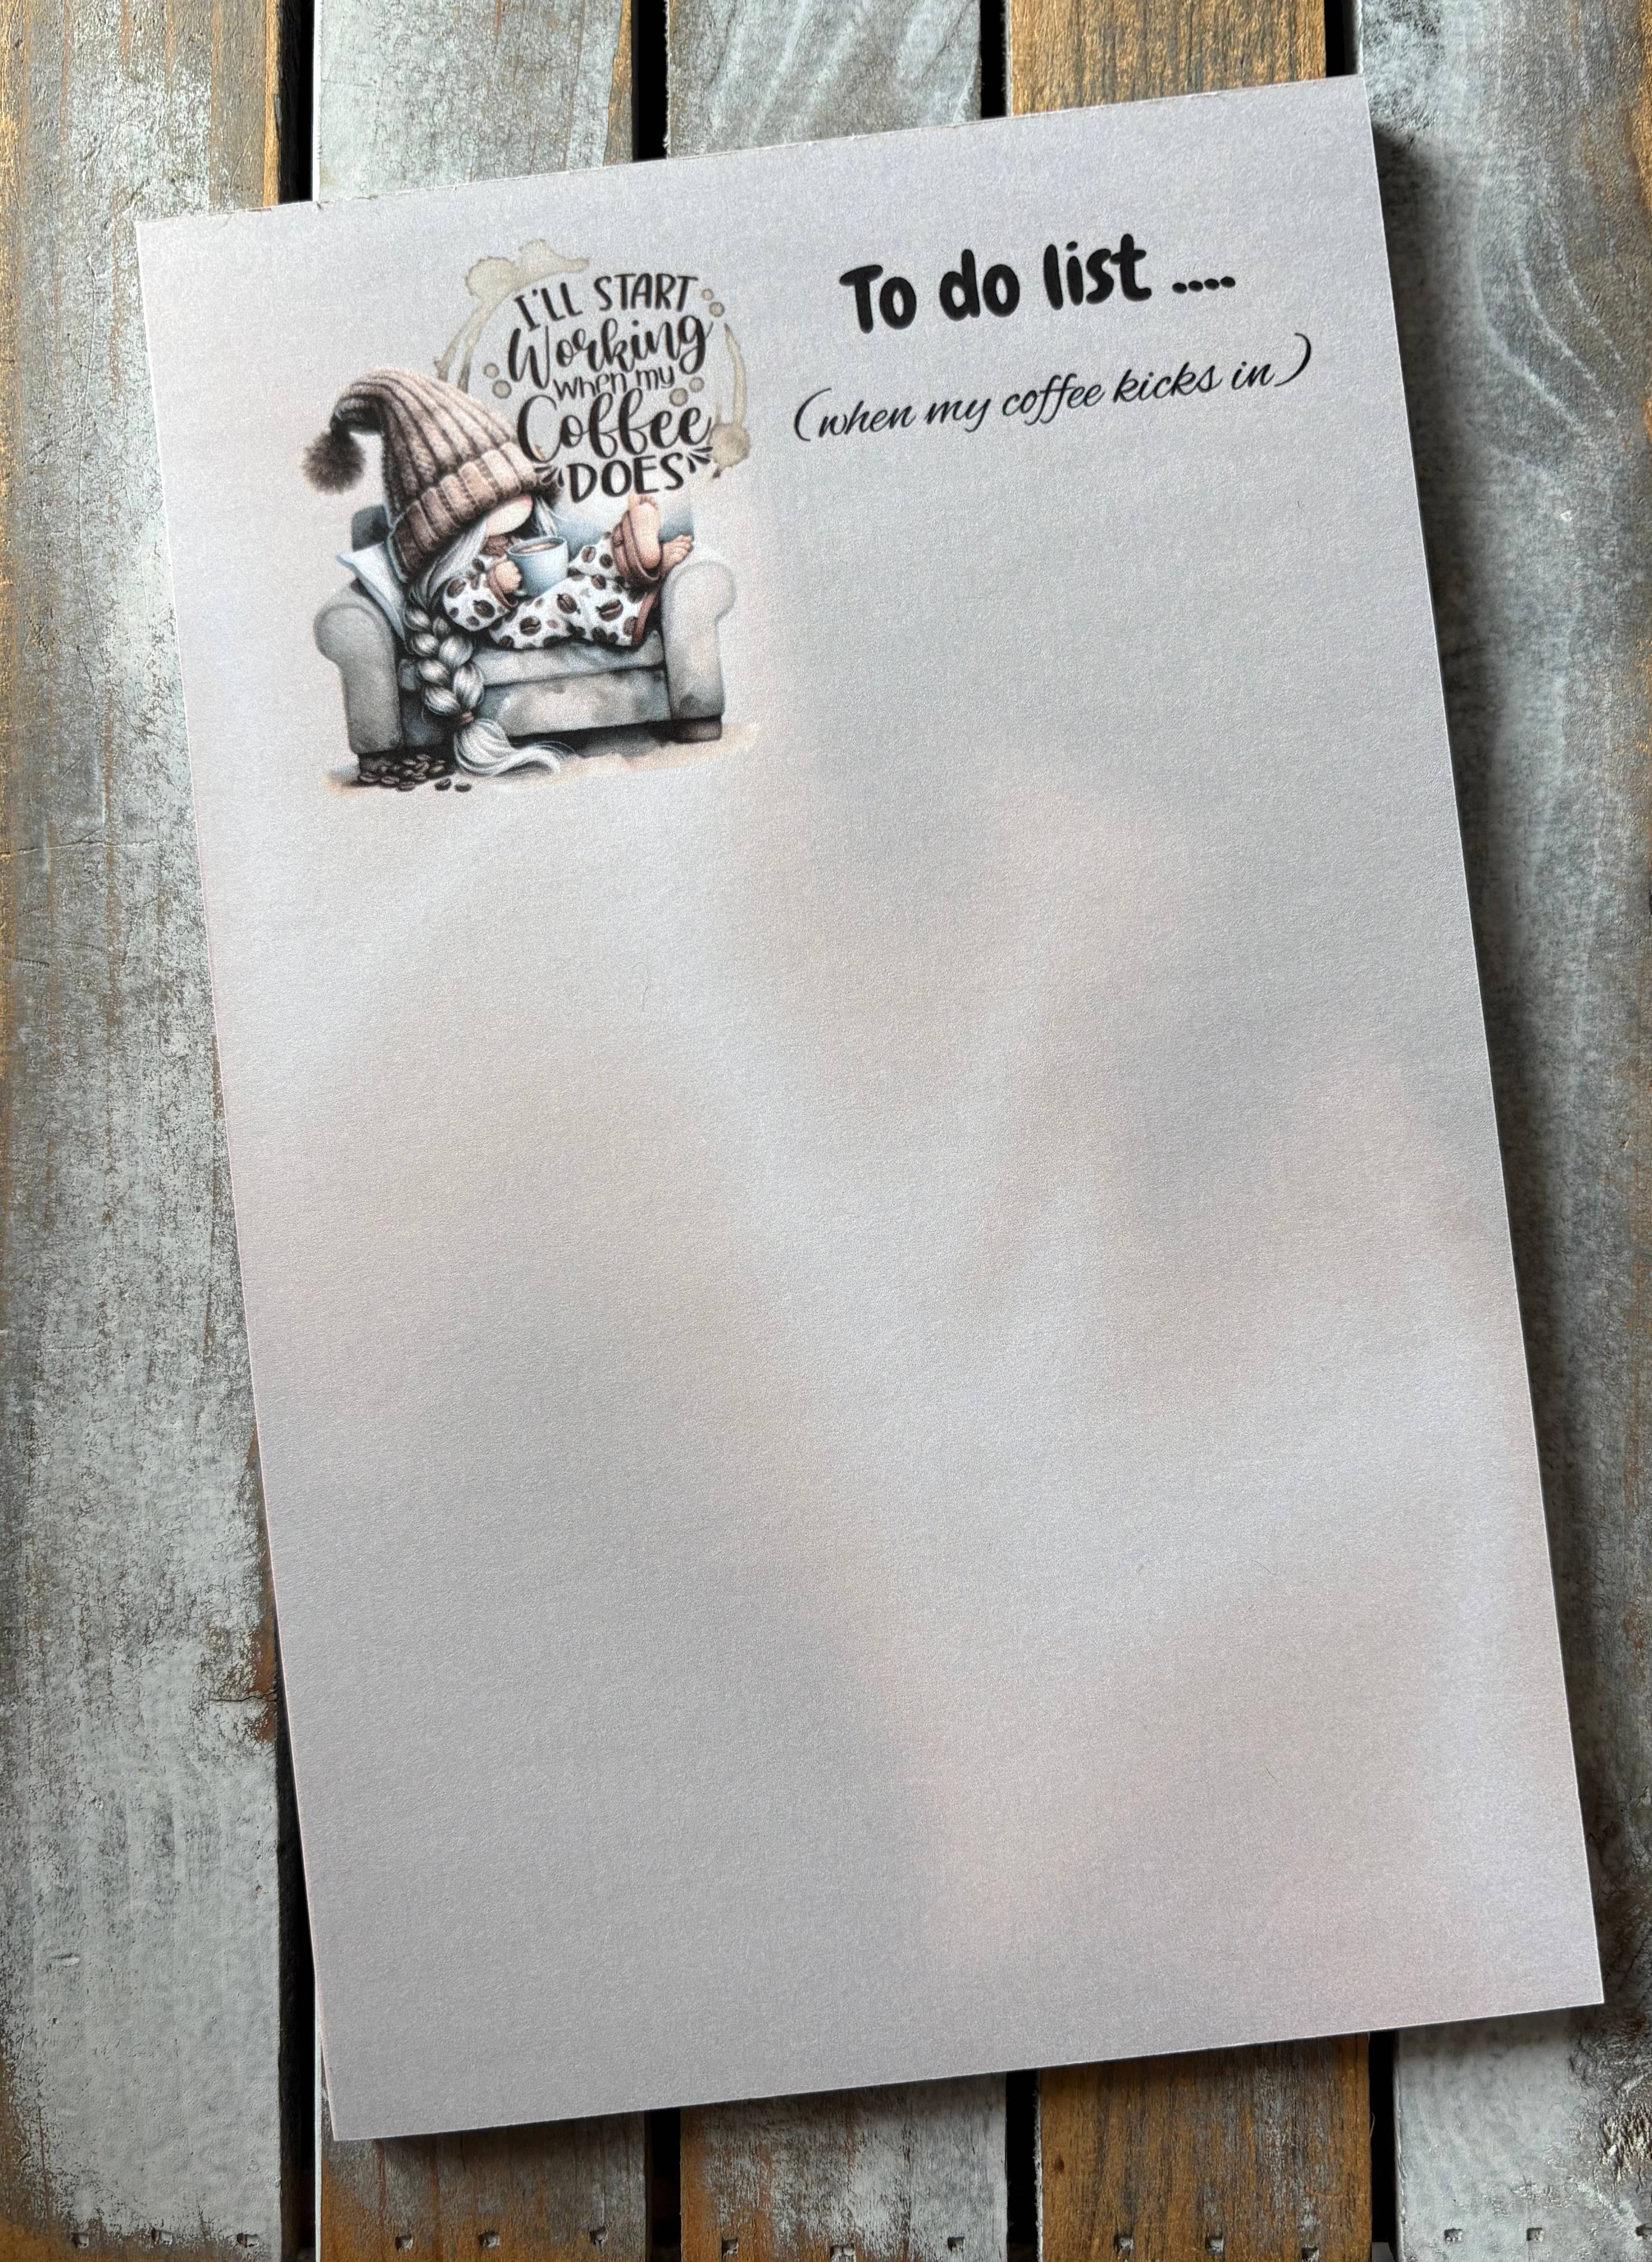 I'LL START
Working
when my
Coffee
DOES
To do list ....
(when my coffee kicks in)